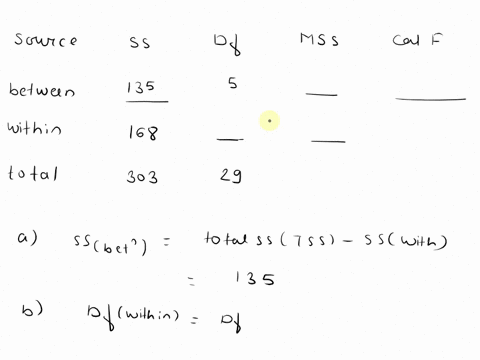 Source SS Df MSS Cal F
between 135 5 __ __
within 168 __ __
total 303 29
a) SS(bet^n) = total SS (TSS) - SS(with)
= 135
b) Df(within) = Df